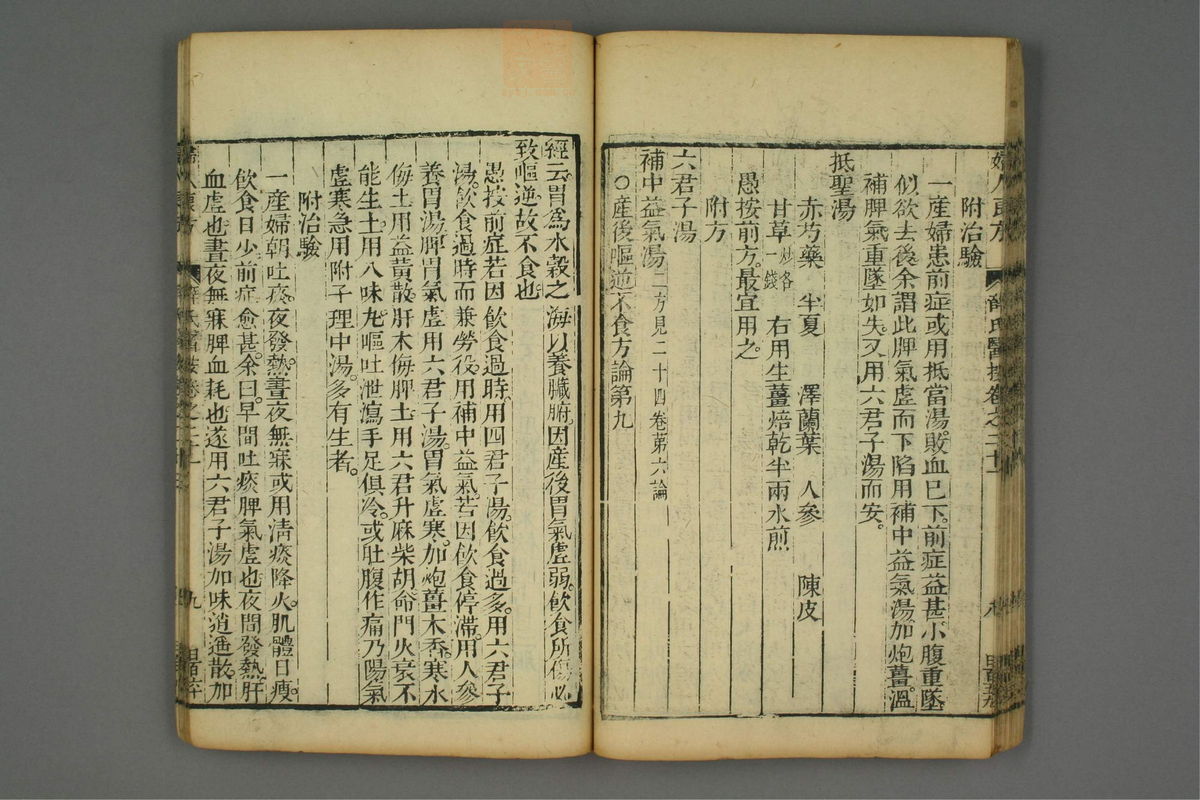 附治驗
一產婦患前症或用抵當湯。敗血已下。前症益甚。小腹重墜
似欲去後。余謂此脾氣虛而下陷。用補中益氣湯加炮薑。溫
補脾氣。重墜如失。又用六君子湯而安。
抵聖湯
赤芍藥 半夏 澤蘭葉 人參 陳皮
甘草炒各一錢 右用生薑焙乾半兩水煎
愚按前方。最宜用之。
附方
六君子湯
補中益氣湯二方見二十四卷第六論
○產後嘔逆不食方論第九
經云胃爲水穀之海以養臟腑。因產後胃氣虛弱。飲食所傷必
致嘔逆。故不食也
愚按前症若因飲食過時。用四君子湯。飲食過多。用六君子
湯。飲食過時而兼勞役。用補中益氣。若因飲食停滯。用人參
養胃湯。脾胃氣虛用六君子湯。胃氣虛寒。加炮薑木香。寒水
侮土用益黃散。肝木侮脾土用六君升麻柴胡。命門火衰不
能生土。用八味丸。嘔吐泄瀉手足俱冷。或肚腹作痛乃陽氣
虛寒急用附子理中湯。多有生者。
附治驗
一產婦朝吐痰。夜發熱。晝夜無寐或用清痰降火。肌體日瘦。
飲食日少。前症愈甚。余曰。早間吐痰脾氣虛也。夜間發熱肝
血虛也。晝夜無寐脾血耗也。遂用六君子湯加味逍遙散。加